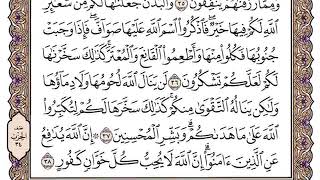 وَمِمَّا رَزَقْنَٰهُمْ يُنفِقُونَ ٣٥ وَٱلْبُدْنَ جَعَلْنَٰهَا لَكُم مِّن شَعَٰٓئِرِ
ٱللَّهِ لَكُمْ فِيهَا خَيْرٌ ۖ فَٱذْكُرُوا۟ ٱسْمَ ٱللَّهِ عَلَيْهَا صَوَآفَّ ۖ فَإِذَا وَجَبَتْ
جُنُوبُهَا فَكُلُوا۟ مِنْهَا وَأَطْعِمُوا۟ ٱلْقَانِعَ وَٱلْمُعْتَرَّ ۚ كَذَٰلِكَ سَخَّرْنَٰهَا
لَكُمْ لَعَلَّكُمْ تَشْكُرُونَ ٣٦ لَن يَنَالَ ٱللَّهَ لُحُومُهَا وَلَا دِمَآؤُهَا
وَلَٰكِن يَنَالُهُ ٱلتَّقْوَىٰ مِنكُمْ ۚ كَذَٰلِكَ سَخَّرَهَا لَكُمْ لِتُكَبِّرُوا۟
ٱللَّهَ عَلَىٰ مَا هَدَىٰكُمْ ۗ وَبَشِّرِ ٱلْمُحْسِنِينَ ٣٧ ۞ إِنَّ ٱللَّهَ يُدَٰفِعُ
عَنِ ٱلَّذِينَ ءَامَنُوٓا۟ ۗ إِنَّ ٱللَّهَ لَا يُحِبُّ كُلَّ خَوَّانٍ كَفُورٍ ٣٨
حزب
٣٤